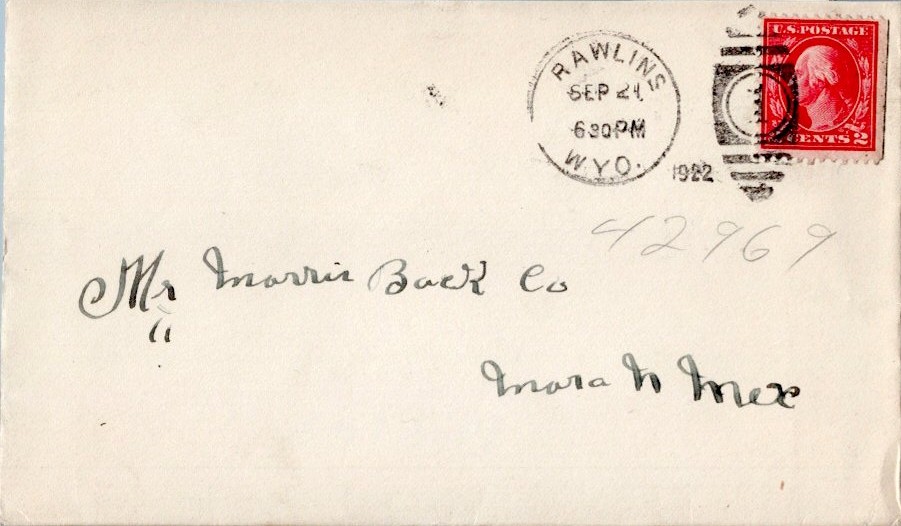 RAWLINS
SEP 21
630PM
WYO.
1922
U.S. POSTAGE
CENTS 2
42969
Mr Morris Back Co
"
Mora N Mex